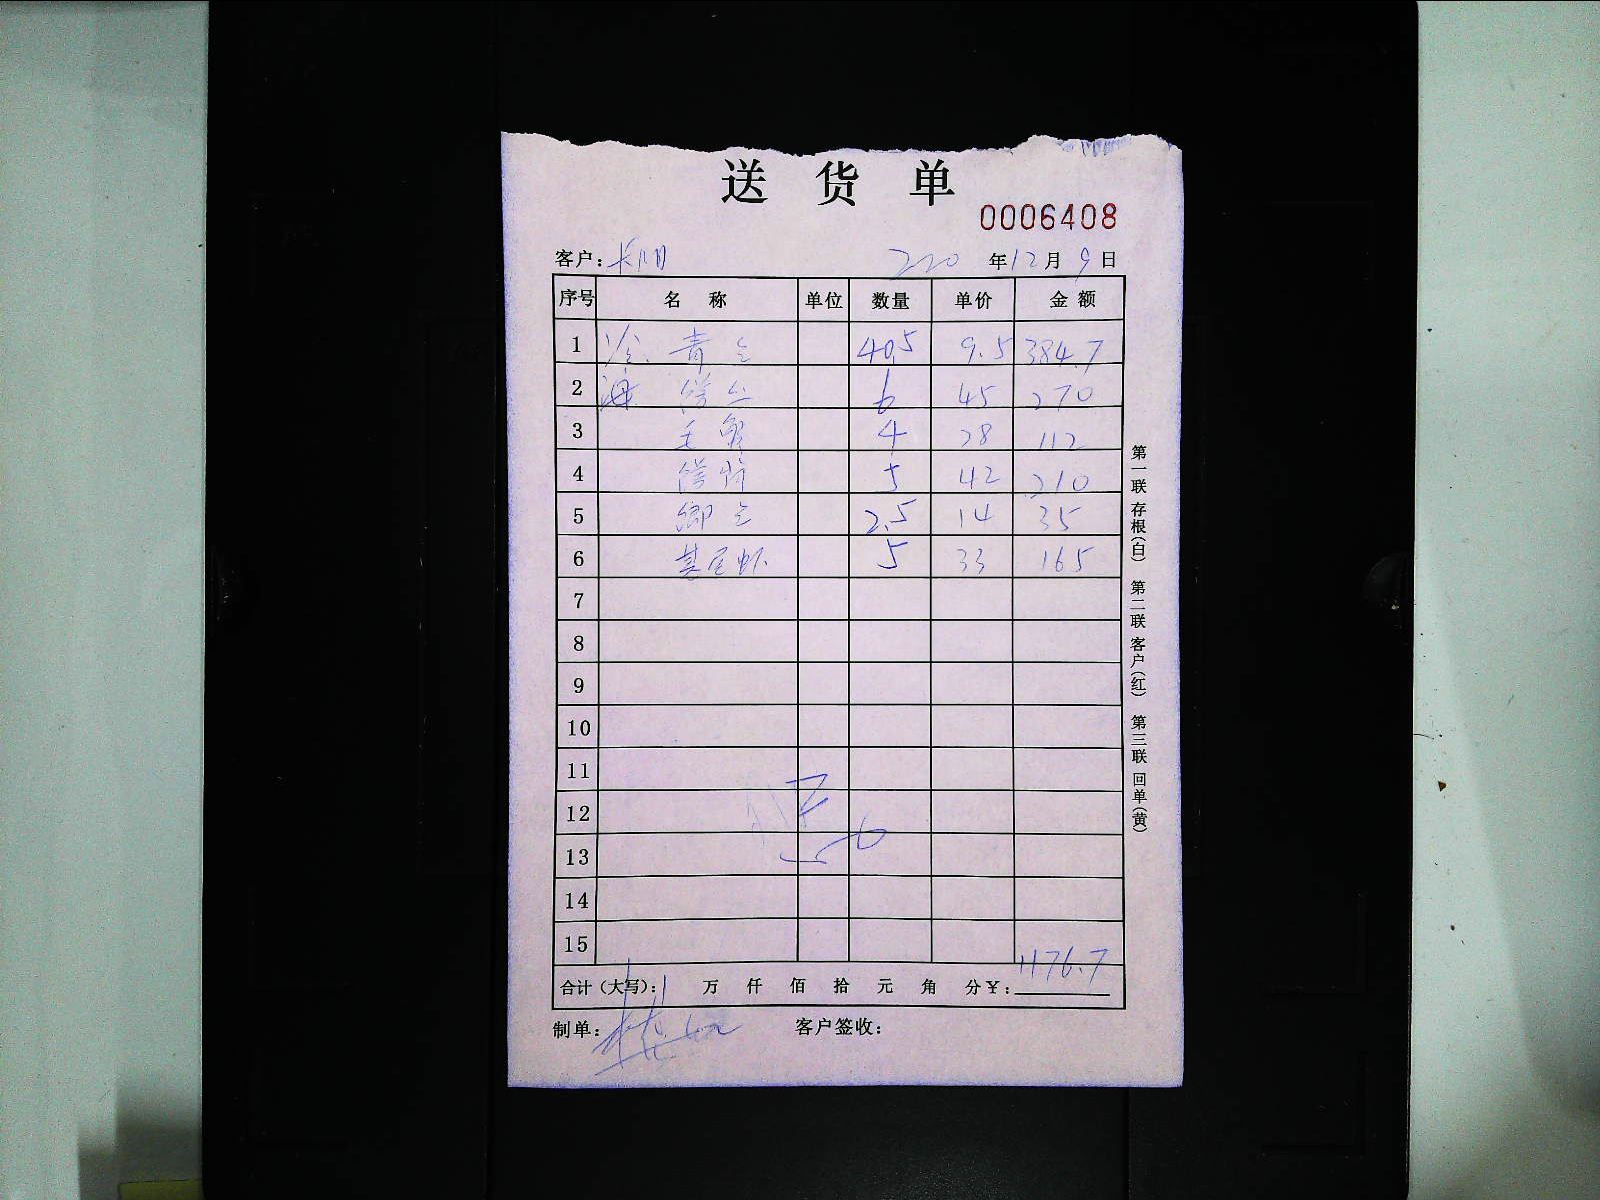 送 货 单
0006408
客户: 220 年 12 月 9 日
序号 名 称 单位 数量 单价 金 额
1 冷. 青 40.5 9.5 384.7
2 海 6 45 270
3 4 28 112
4 5 42 210
5 2.5 14 35
6 基尾虾 5 33 165
7
8
9
10
11
12
13
14
15
1176.7
合计(大写): 万 仟 佰 拾 元 角 分¥:
制单: 客户签收:
第一联 存根(白) 第二联 客户(红) 第三联 回单(黄)